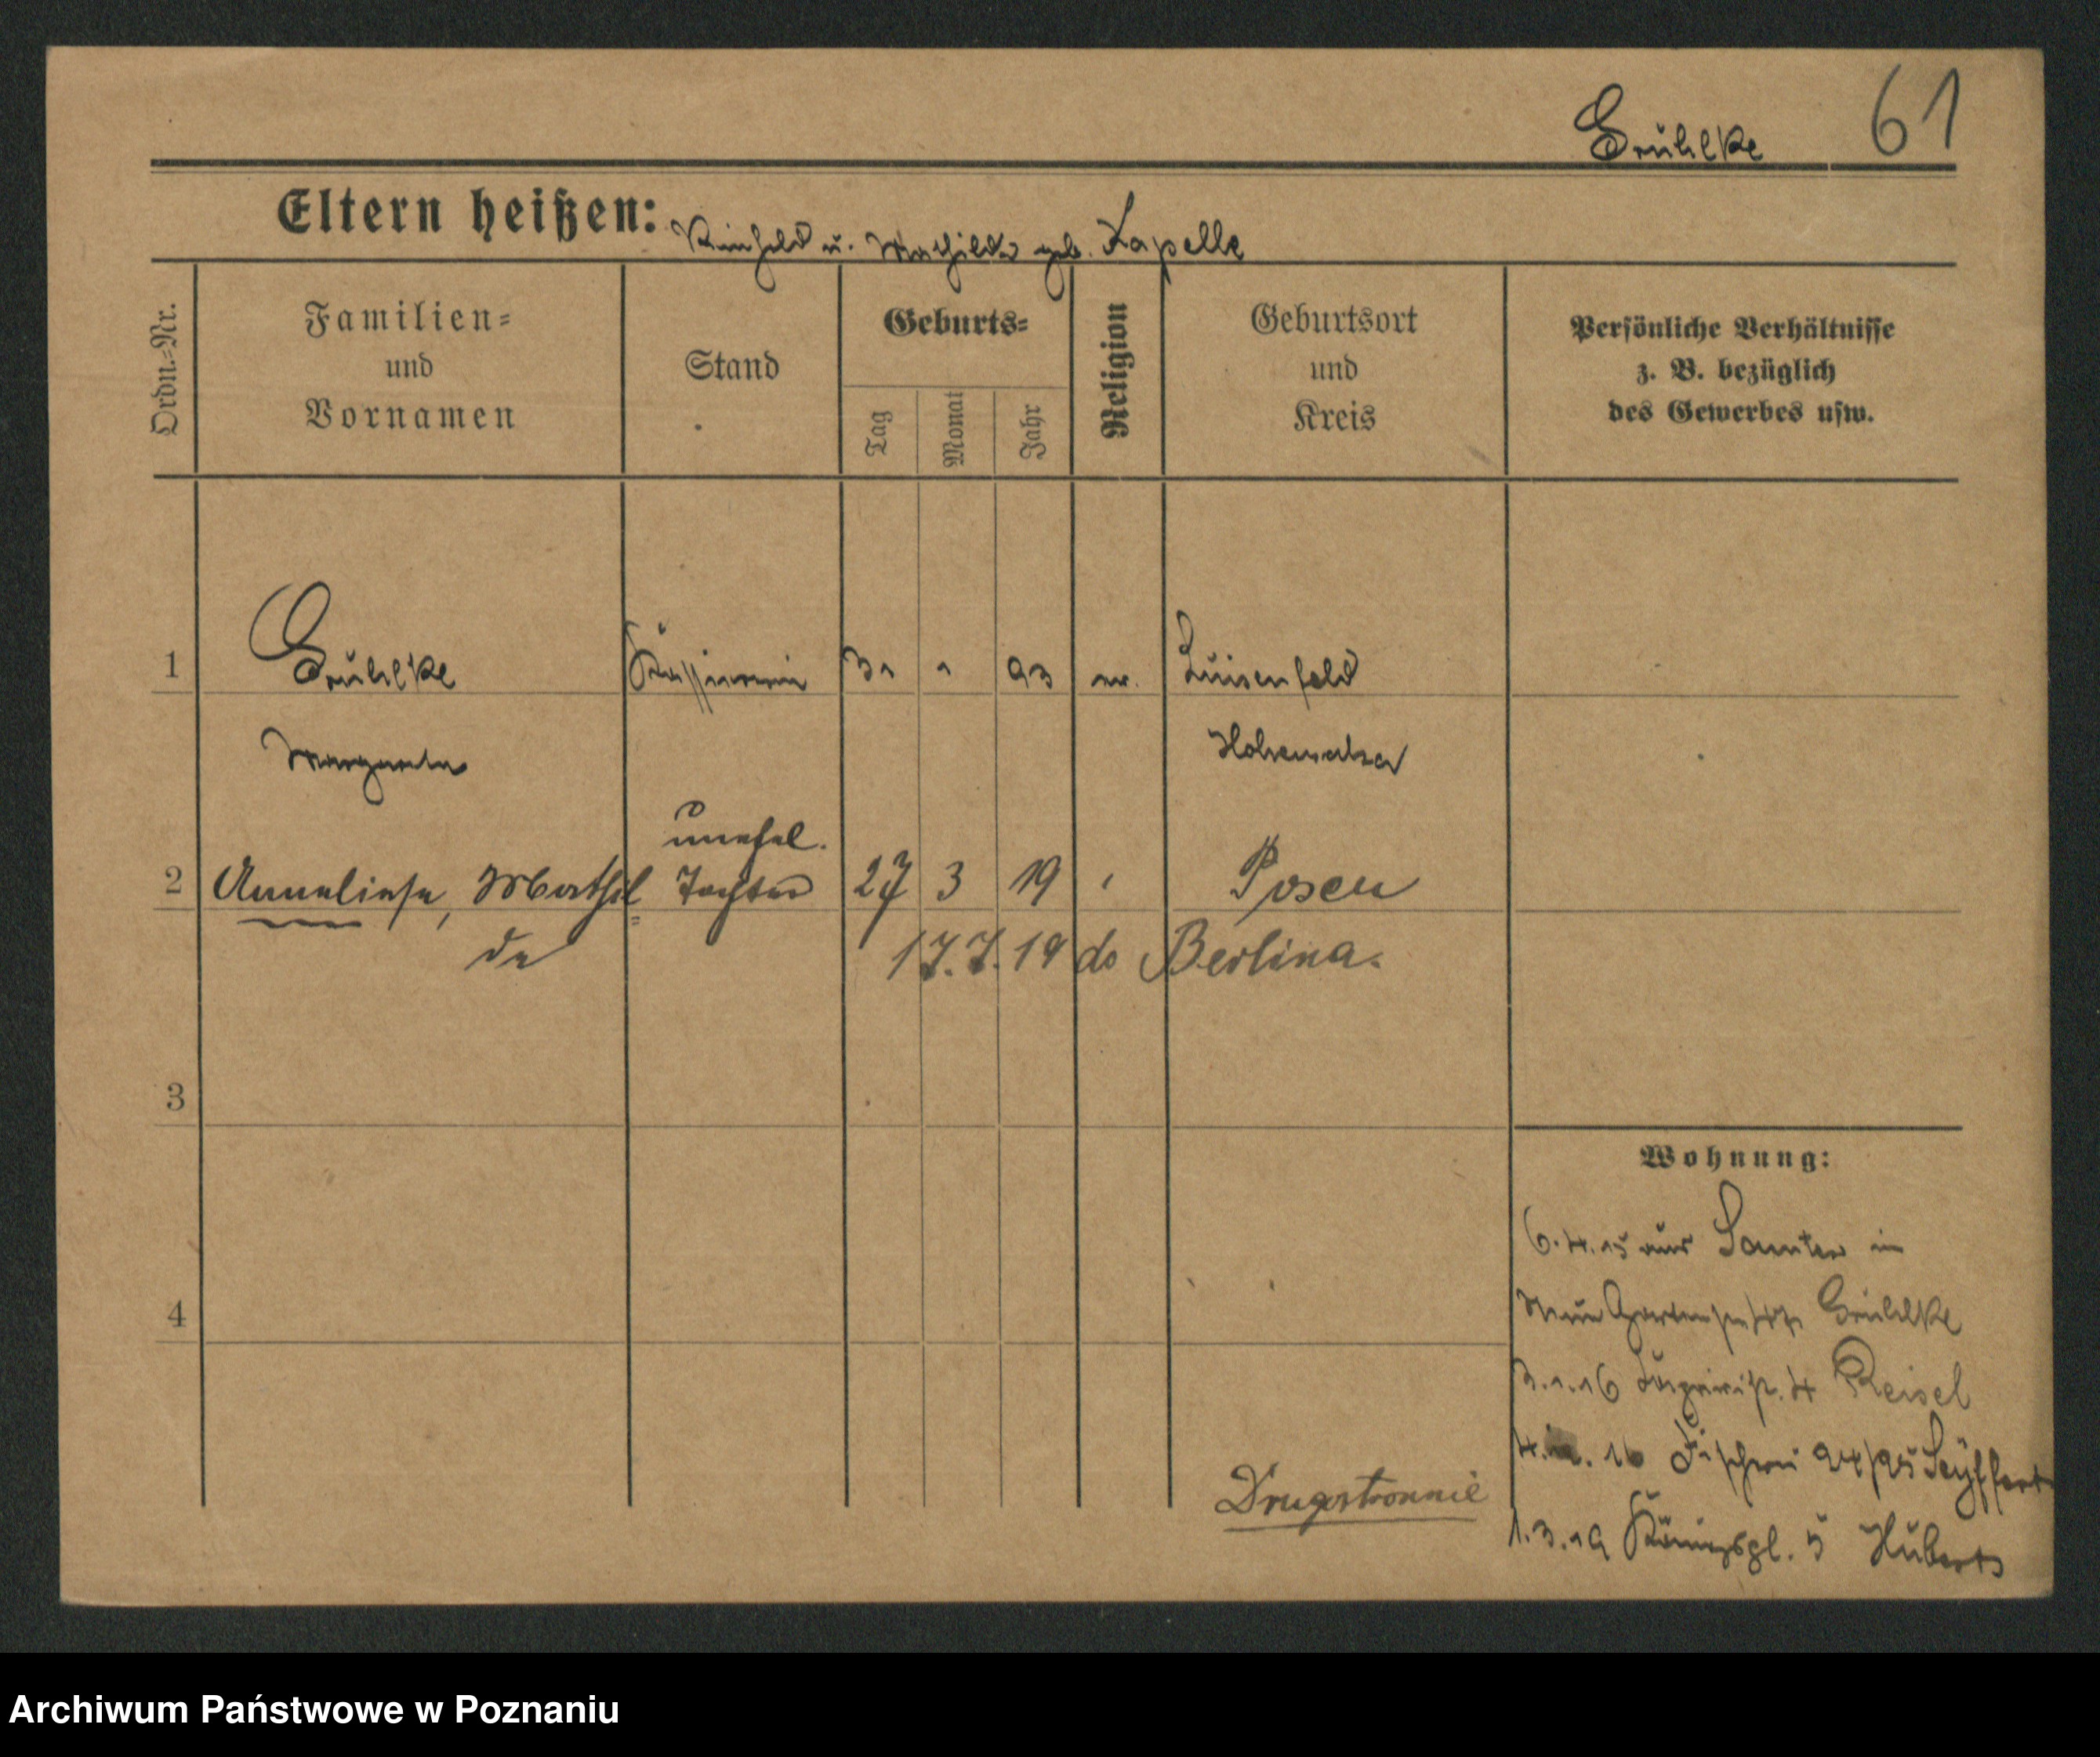 61
Grühlke
Eltern heißen: Reinhold u. Mathilde geb. Kapelle
Ordn.-Nr.
Familien-
und
Vornamen
Stand
Geburts-
Tag
Monat
Jahr
Religion
Geburtsort
und
Kreis
Persönliche Verhältnisse
z. B. bezüglich
des Gewerbes usw.
1 Grühlke Kassiererin 31 1 93 ev. Luisenfeld
Margarete Hohensalza
unehel.
2 Anneliese, Mathil= Tochter 27 3 19 Posen
de 17.7.19 do Berlina.
3
4
Wohnung:
6.4.15 aus Samter in
Grühlke
16 4 Reisel
16 Fischerei 24/25 Seyffert
1.3.19 Königspl. 5 Huberts
Drugostronnie
Archiwum Państwowe w Poznaniu